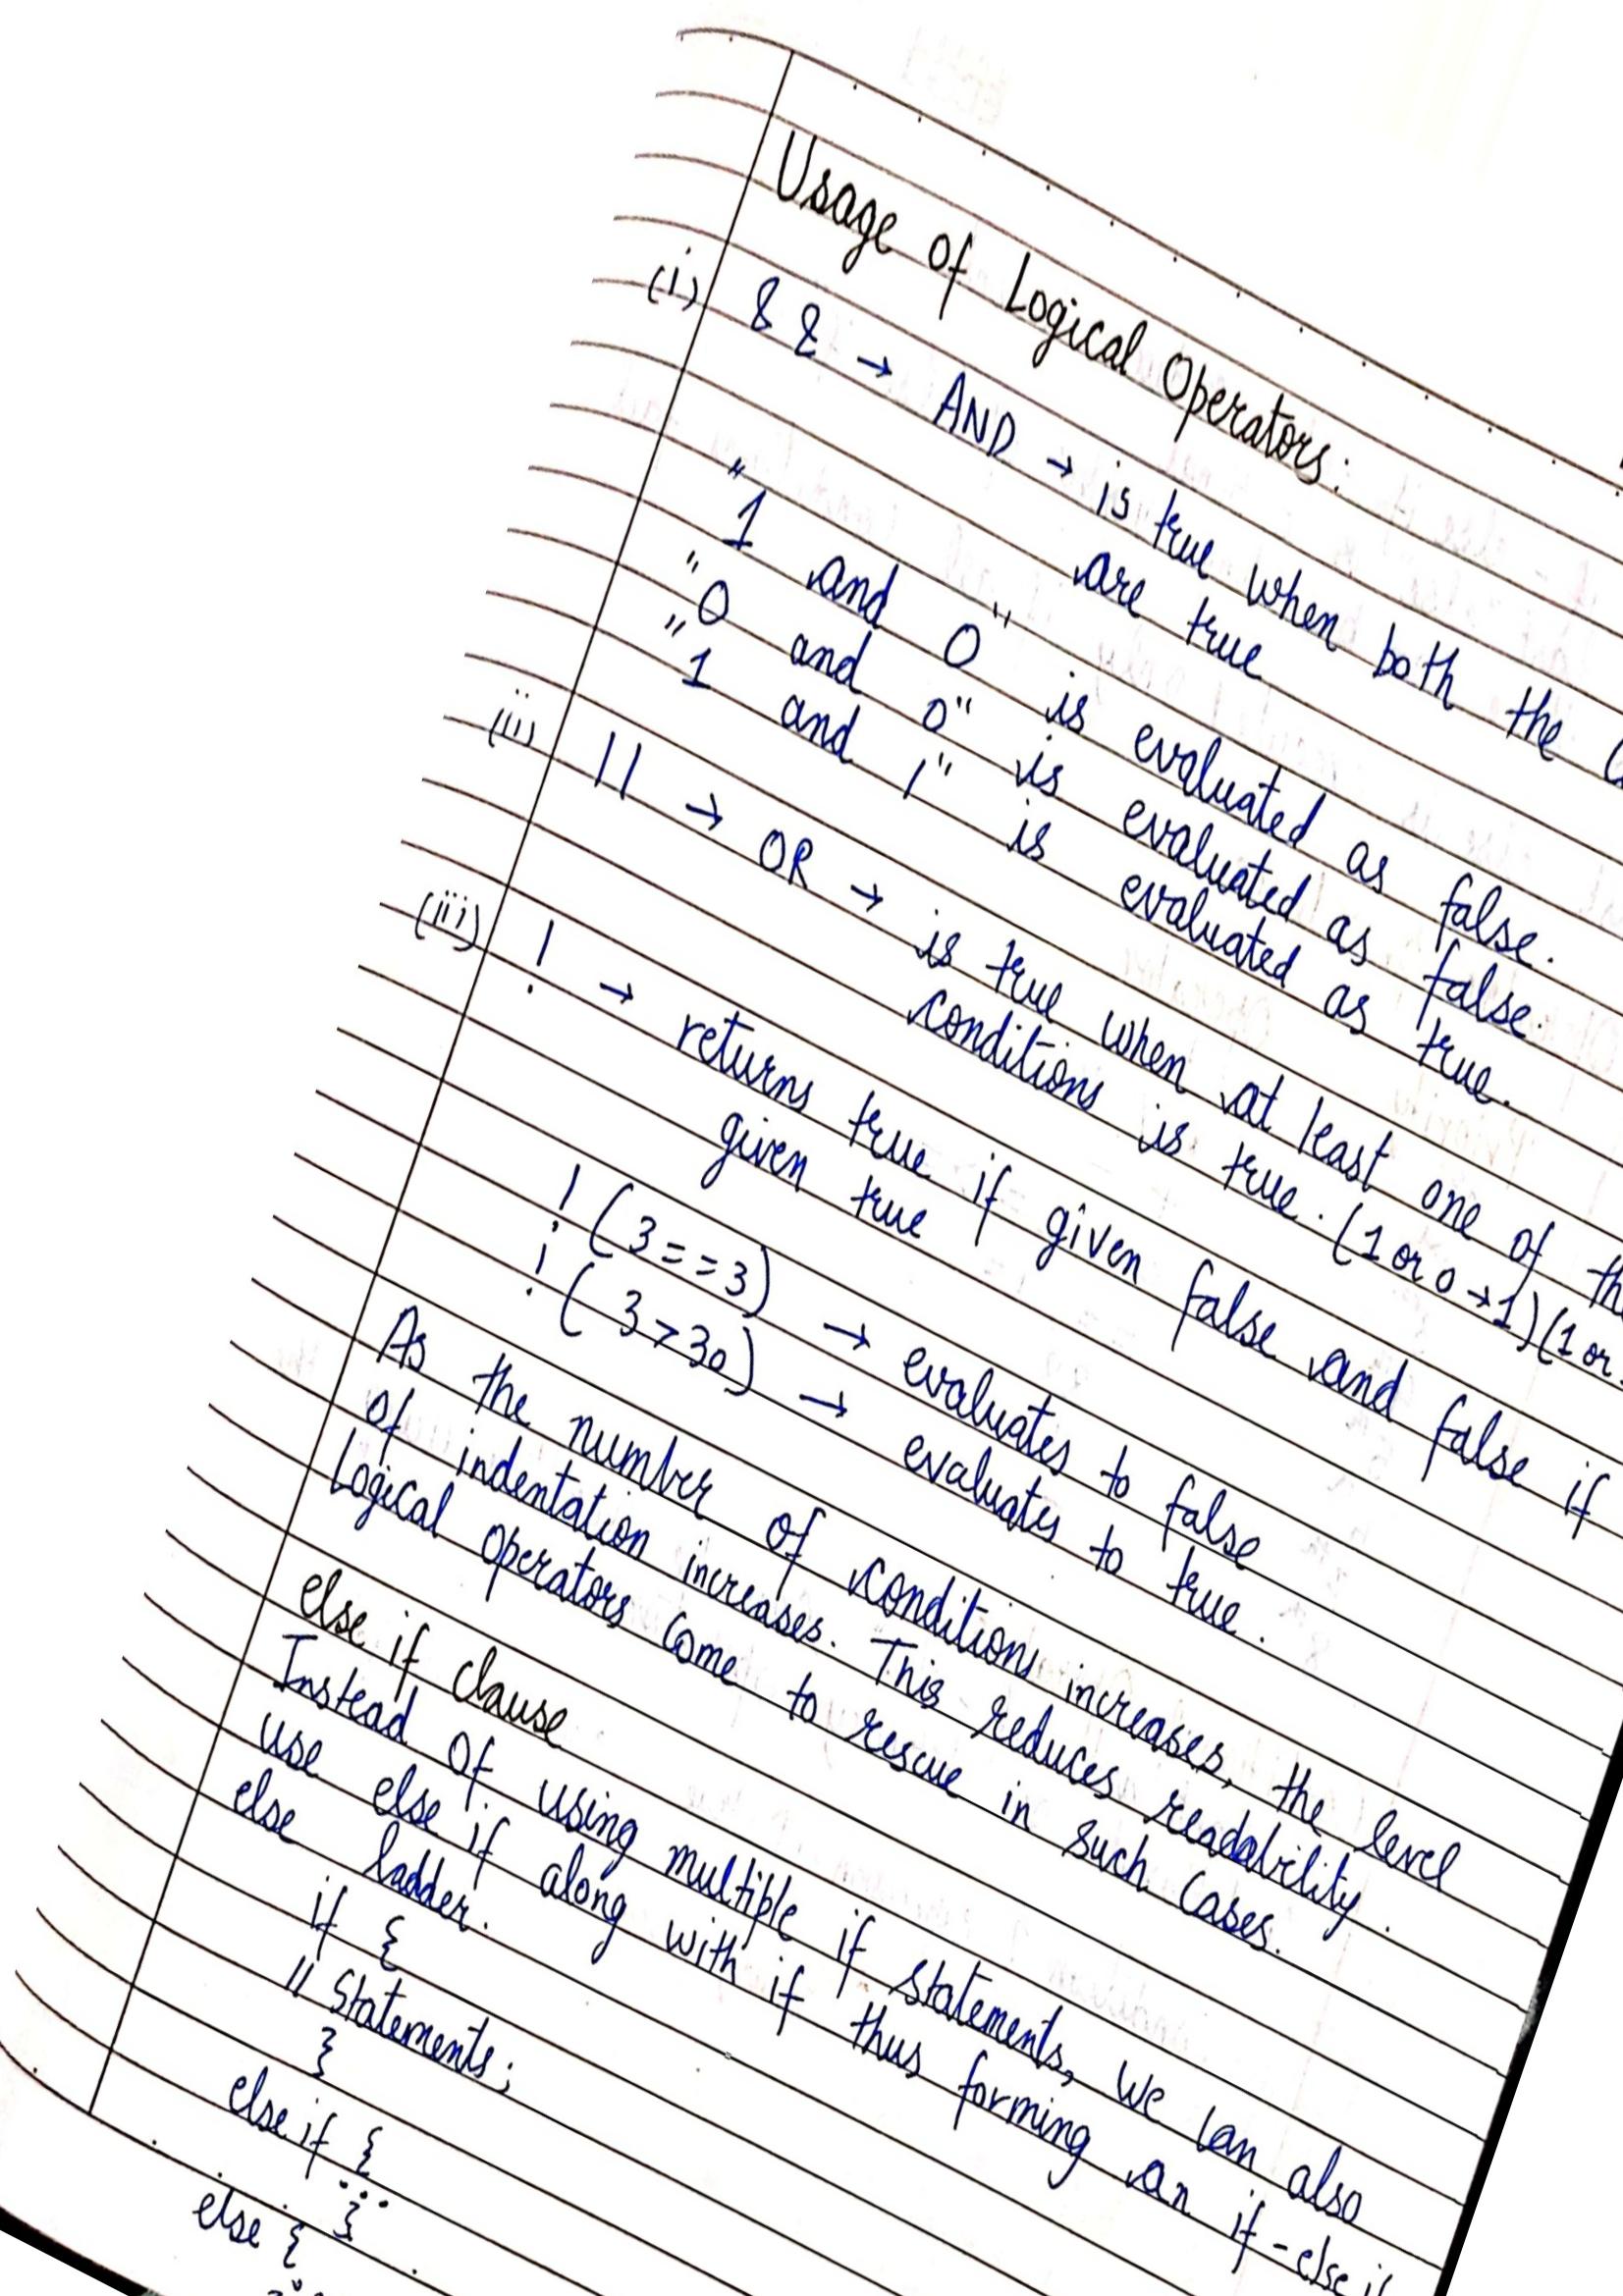 Usage of Logical Operators:
(i) && → AND → is true when both the
are true
"1 and 0" is evaluated as false.
"0 and 0" is evaluated as false.
"1 and 1" is evaluated as true.
(ii) || → OR → is true when at least one of
conditions is true. (1 or 0 → 1) (1 or
(iii) ! → returns true if given false and false if
given true
! (3==3) → evaluates to false
! (3>30) → evaluates to true.
As the number of conditions increases, the level
of indentation increases. This reduces readability.
Logical operators come to rescue in such cases.
else if clause
Instead of using multiple if statements, we can also
use else if along with if thus forming an if-else if
else ladder.
if {
// Statements;
}
else if {
...
}
else {